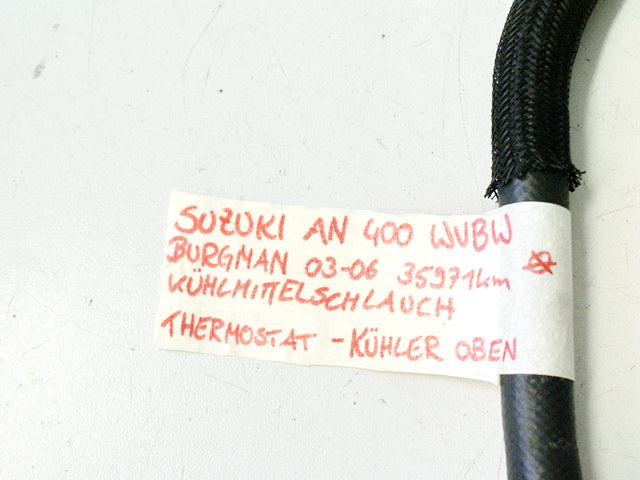 SUZUKI AN 400 WVBW
BURGMAN 03-06 35971km
KÜHLMITTELSCHLAUCH
THERMOSTAT - KÜHLER OBEN